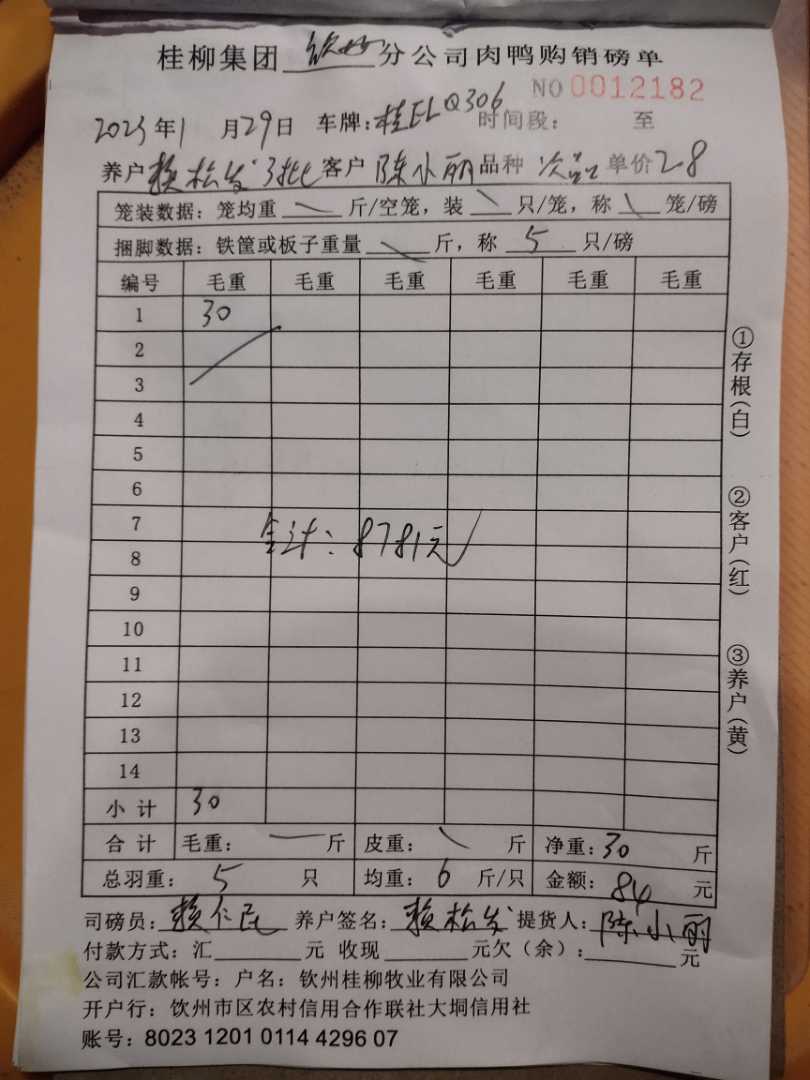 桂柳集团 钦州 分公司肉鸭购销磅单
NO 0012182
2023年1月29日 车牌:桂ELQ306 时间段: 至
养户 赖松发3批 客户 陈小丽 品种 次品 单价 2.8
笼装数据:笼均重 斤/空笼,装 只/笼,称 笼/磅
捆脚数据:铁筐或板子重量 斤,称 5 只/磅
编号 毛重 毛重 毛重 毛重 毛重 毛重
1 30
2
3
4
5
6
7
合计:8781元
8
9
10
11
12
13
14
小计 30
合计 毛重: 斤 皮重: 斤 净重:30 斤
总羽重: 5 只 均重: 6 斤/只 金额: 84 元
司磅员:赖仁民 养户签名:赖松发 提货人:陈小丽
付款方式:汇 元 收现 元欠(余): 元
公司汇款帐号:户名:钦州桂柳牧业有限公司
开户行:饮州市区农村信用合作联社大垌信用社
账号:8023 1201 0114 4296 07
①存根(白)
②客户(红)
③养户(黄)